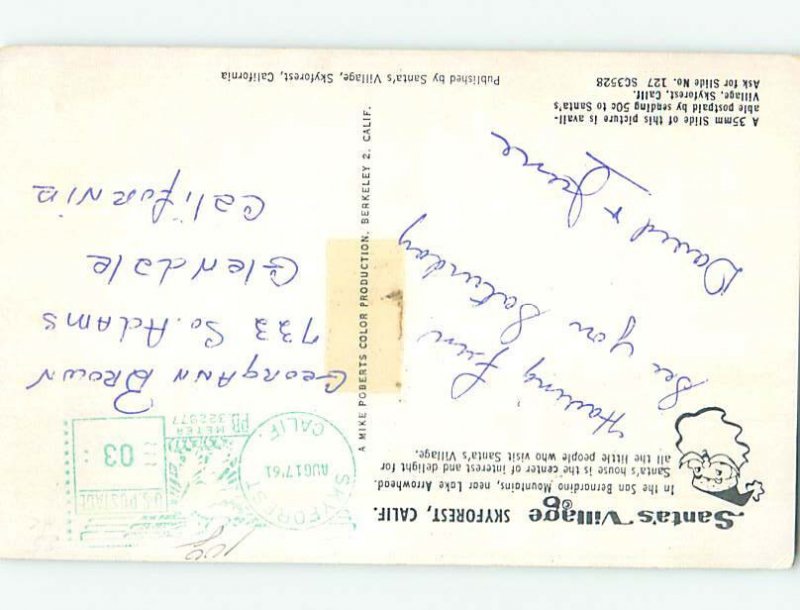 Santa's Village SKYFOREST, CALIF.
In the San Bernardino Mountains, near Lake Arrowhead.
Santa's house is the center of interest and delight for
all the little people who visit Santa's Village.
Having Fun
See you Saturday
David & June
A 35mm Slide of this picture is avail-
able postpaid by sending 50c to Santa's
Village, Skyforest, Calif.
Ask for Slide No. 127 SC3528
A MIKE ROBERTS COLOR PRODUCTION, BERKELEY 2, CALIF.
Published by Santa's Village, Skyforest, California
SKYFOREST
AUG 17 '61
CALIF.
U.S. POSTAGE
03
PB METER
322977
GeorgAnn Brown
722 So. Adams
Glendale
California